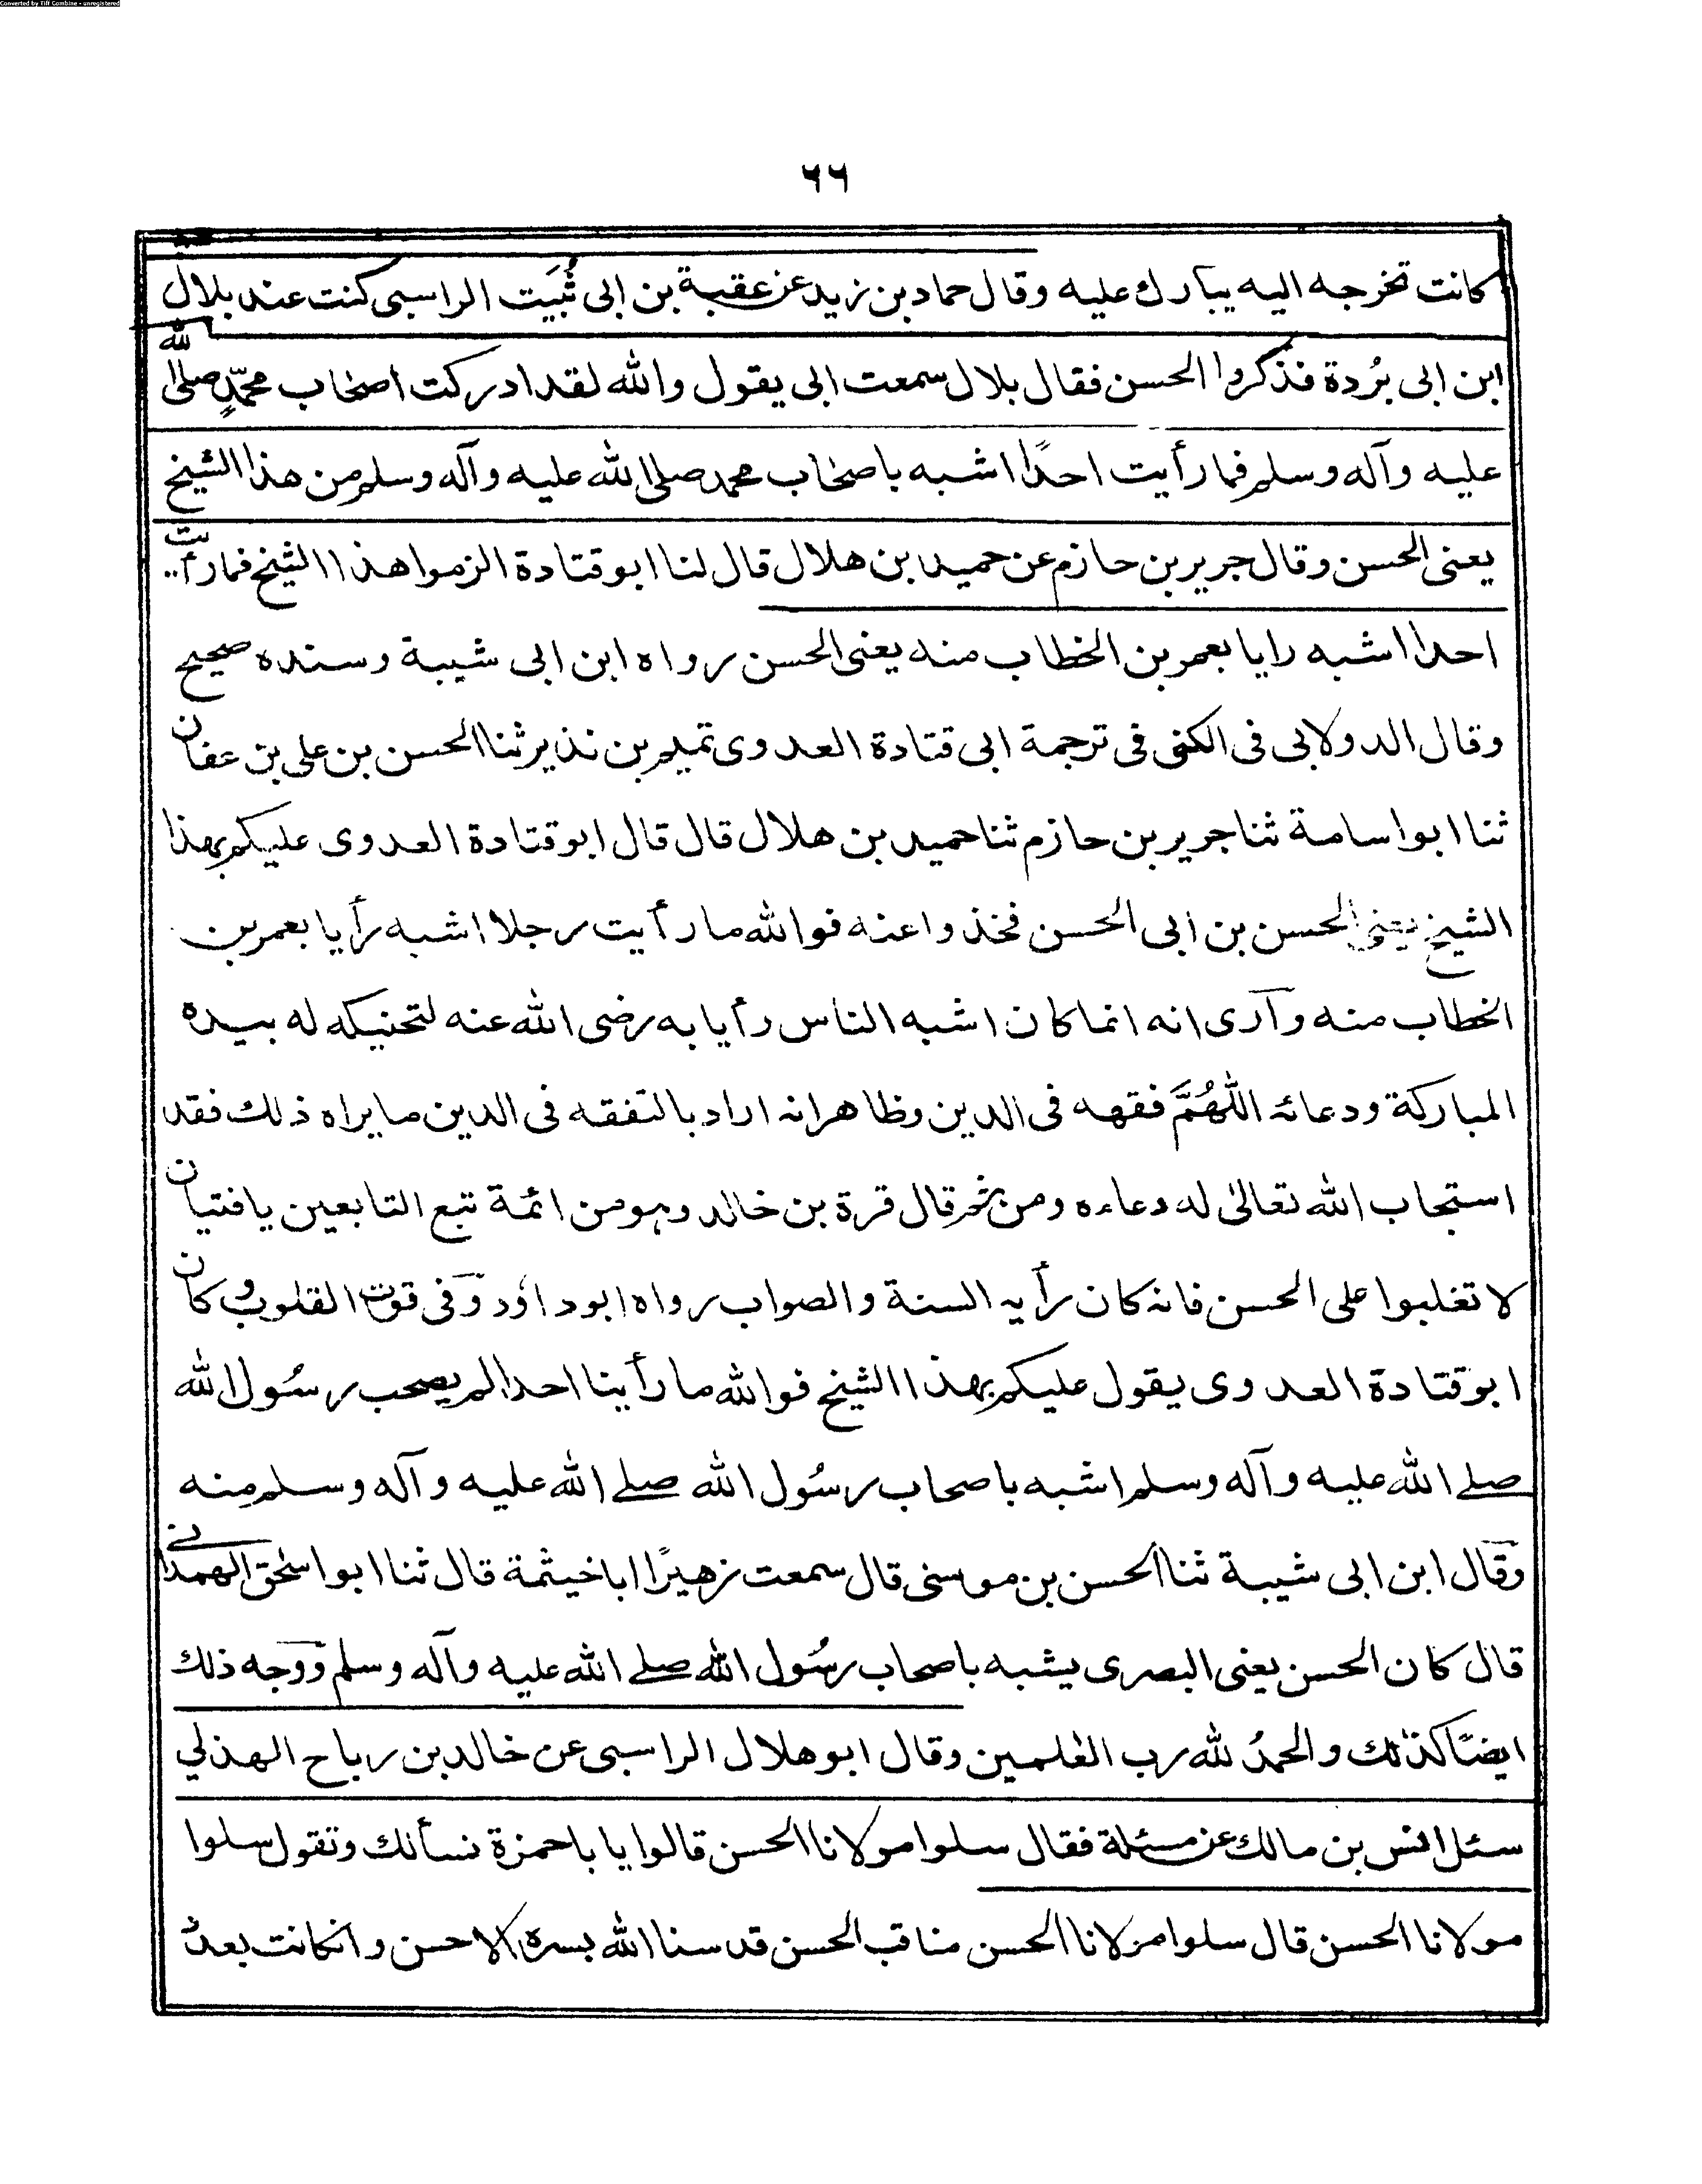 Converted by Tiff Combine - unregistered
٦٦
كانت تخرجه اليه يبارك عليه وقال حماد بن زيد عن عقبة بن ابى ثُبَيت الراسبى كنت عند بلال
ابن ابى بُردة فذكروا الحسن فقال بلال سمعت ابى يقول والله لقد ادركت اصحاب محمّدٍ صلى الله
عليه وآله وسلم فما رأيت احدًا اشبه باصحاب محمد صلى الله عليه وآله وسلم من هذا الشيخ
يعنى الحسن وقال جرير بن حازم عن حميد بن هلال قال لنا ابو قتادة الزموا هذا الشيخ فما رأيت
احدا اشبه رايا بعمر بن الخطاب منه يعنى الحسن رواه ابن ابى شيبة وسنده صحيح
وقال الدولابى فى الكنى فى ترجمة ابى قتادة العدوى تميم بن نذير ثنا الحسن بن على بن عفان
ثنا ابو اسامة ثنا جرير بن حازم ثنا حميد بن هلال قال قال ابو قتادة العدوى عليكم بهذا
الشيخ يعنى الحسن بن ابى الحسن فخذوا عنه فوالله ما رأيت رجلا اشبه رأيا بعمر بن
الخطاب منه وآرى انه انما كان اشبه الناس رأيا به رضى الله عنه لتحنيكه له بيده
المباركة ودعائه اللّٰهُمَّ فقهه فى الدين وظاهرانه اراد بالتفقه فى الدين ما يراه ذلك فقد
استجاب الله تعالىٰ له دعاءه ومن ثم قال قرة بن خالد وهو من ائمة تبع التابعين يا فتيان
لا تغلبوا على الحسن فانه كان رأيه السنة والصواب رواه ابو داؤد وفى قوت القلوب وكان
ابو قتادة العدوى يقول عليكم بهذا الشيخ فوالله ما رأينا احدا لم يصحب رسُول الله
صلے الله عليه وآله وسلم اشبه باصحاب رسُول الله صلے الله عليه وآله وسلم منه
وقال ابن ابى شيبة ثنا الحسن بن موسىٰ قال سمعت زهيرًا ابا خيثمة قال ثنا ابو اسحٰق الهمدانے
قال كان الحسن يعنى البصرى يشبه باصحاب رسُول الله صلے الله عليه وآله وسلم ووجه ذلك
ايضًا كذٰلك والحمدُ لله رب العٰلمين وقال ابو هلال الراسبى عن خالد بن رباح الهذلي
سئل انس بن مالك عن مسئلة فقال سلوا مولانا الحسن قالوا يا باحمزة نسألك وتقول سلوا
مولانا الحسن قال سلوا مولانا الحسن مناقب الحسن قدسنا الله بسره الاحسن وانكانت بعد